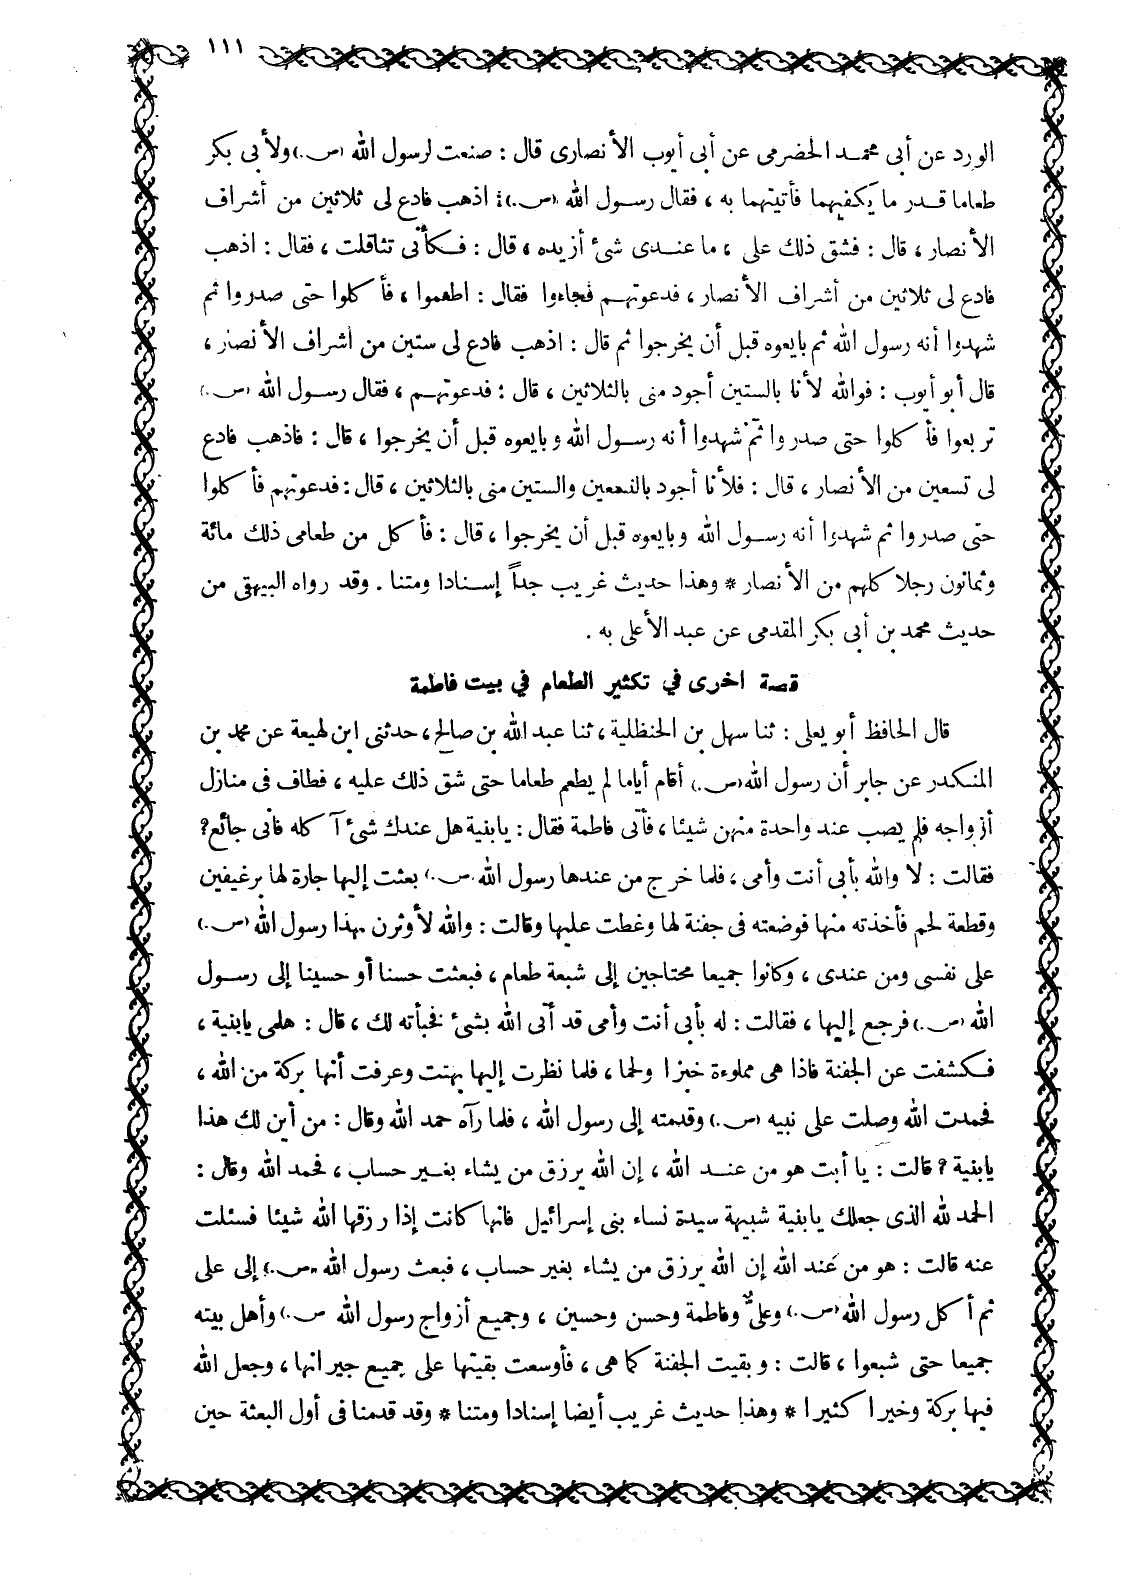 ١١١
الورد عن أبى محمد الحضرمى عن أبى أيوب الأنصارى قال : صنعت لرسول الله (ص.) ولأبى بكر
طعاما قدر ما يكفيهما فأتيتهما به ، فقال رسول الله (ص.) : اذهب فادع لى ثلاثين من أشراف
الأنصار ، قال : فشق ذلك على ، ما عندى شئ أزيده ، قال : فكأنى تثاقلت ، فقال : اذهب
فادع لى ثلاثين من أشراف الأنصار ، فدعوتهم فجاءوا فقال : اطعموا ، فأكلوا حتى صدروا ثم
شهدوا أنه رسول الله ثم بايعوه قبل أن يخرجوا ثم قال : اذهب فادع لى ستين من أشراف الأنصار ،
قال أبو أيوب : فوالله لأنا بالستين أجود منى بالثلاثين ، قال : فدعوتهم ، فقال رسول الله (ص.)
تربعوا فأكلوا حتى صدروا ثم شهدوا أنه رسول الله وبايعوه قبل أن يخرجوا ، قال : فاذهب فادع
لى تسعين من الأنصار ، قال : فلأنا أجود بالتسعين والستين منى بالثلاثين ، قال : فدعوتهم فأكلوا
حتى صدروا ثم شهدوا أنه رسول الله وبايعوه قبل أن يخرجوا ، قال : فأكل من طعامى ذلك مائة
وثمانون رجلا كلهم من الأنصار * وهذا حديث غريب جداً إسنادا ومتنا . وقد رواه البيهقى من
حديث محمد بن أبى بكر المقدمى عن عبد الأعلى به .
قصة اخرى في تكثير الطعام في بيت فاطمة
قال الحافظ أبو يعلى : ثنا سهل بن الحنظلية ، ثنا عبد الله بن صالح ، حدثنى ابن لهيعة عن محمد بن
المنكدر عن جابر أن رسول الله (ص.) أقام أياما لم يطعم طعاما حتى شق ذلك عليه ، فطاف فى منازل
أزواجه فلم يصب عند واحدة منهن شيئا ، فأتى فاطمة فقال : يابنية هل عندك شئ آكله فانى جائع ؟
فقالت : لا والله بأبى أنت وأمى ، فلما خرج من عندها رسول الله (ص.) بعثت إليها جارة لها برغيفين
وقطعة لحم فأخذته منها فوضعته فى جفنة لها وغطت عليها وقالت : والله لأوثرن بهذا رسول الله (ص.)
على نفسى ومن عندى ، وكانوا جميعا محتاجين إلى شبعة طعام ، فبعثت حسنا أو حسينا إلى رسول
الله (ص.) فرجع إليها ، فقالت : له بأبى أنت وأمى قد أتى الله بشئ فخبأته لك ، قال : هلمى يابنية ،
فكشفت عن الجفنة فاذا هى مملوءة خبزا ولحما ، فلما نظرت إليها بهتت وعرفت أنها بركة من الله ،
فحمدت الله وصلت على نبيه (ص.) وقدمته إلى رسول الله ، فلما رآه حمد الله وقال : من أين لك هذا
يابنية ؟ قالت : يا أبت هو من عند الله ، إن الله يرزق من يشاء بغير حساب ، فحمد الله وقال :
الحمد لله الذى جعلك يابنية شبيهة سيدة نساء بنى إسرائيل فانها كانت إذا رزقها الله شيئا فسئلت
عنه قالت : هو من عند الله إن الله يرزق من يشاء بغير حساب ، فبعث رسول الله (ص.) إلى على
ثم أكل رسول الله (ص.) وعلىٌّ وفاطمة وحسن وحسين ، وجميع أزواج رسول الله (ص.) وأهل بيته
جميعا حتى شبعوا ، قالت : وبقيت الجفنة كما هى ، فأوسعت بقيتها على جميع جيرانها ، وجعل الله
فيها بركة وخيرا كثيرا * وهذا حديث غريب أيضا إسنادا ومتنا * وقد قدمنا فى أول البعثة حين